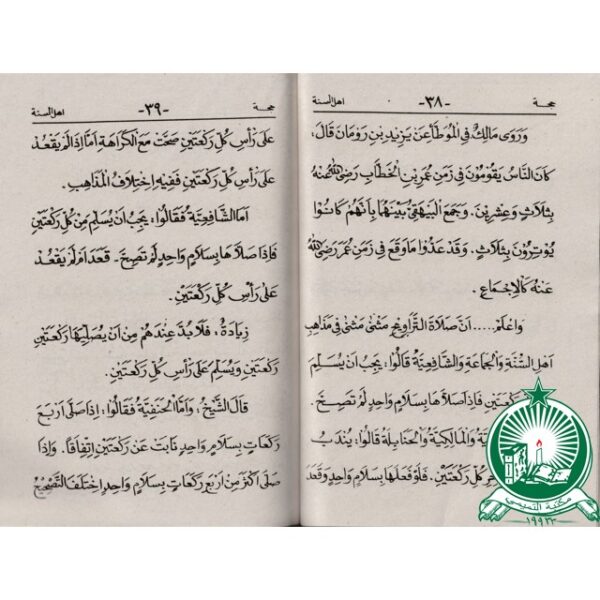 حجة -٣٨- اهل السنة
وَرَوَى مَالِكٌ فِي الْمُوَطَّأ عَنْ يَزِيْدِ بْنِ رَوْمَانَ قَالَ،
كَانَ النَّاسُ يَقُوْمُوْنَ فِي زَمَنِ عُمَرِ بْنِ الْخَطَّابِ رَضِيَ اللهُ عَنْهُ
بِثَلَاثٍ وَعِشْرِيْنَ. وَجَمَعَ الْبَيْهَقِيُّ بَيْنَهُمَا بِأَنَّهُمْ كَانُوْا
يُوْتِرُوْنَ بِثَلَاثٍ. وَقَدْ عَدُّوْا مَا وَقَعَ فِي زَمَنِ عُمَرَ رَضِيَ اللهُ
عَنْهُ كَالْاِجْمَاعِ.
وَاعْلَمْ..... اَنَّ صَلَاةَ التَّرَاوِيْحِ مَثْنَى مَثْنَى فِي مَذَاهِبِ
اَهْلِ السُّنَّةِ وَالْجَمَاعَةِ وَالشَّافِعِيَّةِ قَالُوْا: يَجِبُ اَنْ يُسَلِّمَ
رَكْعَتَيْنِ فَاِذَا صَلَاهَا بِسَلَامٍ وَاحِدٍ لَمْ تَصِحَّ.
وَالْمَالِكِيَّةِ وَالْحَنَابِلَةِ قَالُوْا: يُنْدَبُ
كُلِّ رَكْعَتَيْنِ. فَلَوْ فَعَلَهَا بِسَلَامٍ وَاحِدٍ وَقَعَدَ
حجة -٣٩- اهل السنة
عَلَى رَأْسِ كُلِّ رَكْعَتَيْنِ صَحَّتْ مَعَ الْكَرَاهَةِ اَمَّا اِذَا لَمْ يَقْعُدْ
عَلَى رَأْسِ كُلِّ رَكْعَتَيْنِ فَفِيْهِ اِخْتِلَافُ الْمَذَاهِبِ.
اَمَّا الشَّافِعِيَّةُ فَقَالُوْا: يَجِبُ اَنْ يُسَلِّمَ مِنْ كُلِّ رَكْعَتَيْنِ
فَاِذَا صَلَاهَا بِسَلَامٍ وَاحِدٍ لَمْ تَصِحَّ - قَعَدَ اَمْ لَمْ يَقْعُدْ
عَلَى رَأْسِ كُلِّ رَكْعَتَيْنِ.
زِيَادَةٌ، فَلَا بُدَّ عِنْدَهُمْ مِنْ اَنْ يُصَلِّيَهَا رَكْعَتَيْنِ
رَكْعَتَيْنِ وَيُسَلِّمَ عَلَى رَأْسِ كُلِّ رَكْعَتَيْنِ.
قَالَ الشَّيْخُ، وَاَمَّا الْحَنَفِيَّةُ فَقَالُوْا: اِذَا صَلَّى اَرْبَعَ
رَكَعَاتٍ بِسَلَامٍ وَاحِدٍ نَابَتْ عَنْ رَكْعَتَيْنِ اِتِّفَاقًا. وَاِذَا
صَلَّى اَكْثَرَ مِنْ اَرْبَعِ رَكَعَاتٍ بِسَلَامٍ وَاحِدٍ اِخْتَلَفَ التَّصْحِيْحُ
مكتبة النديمي